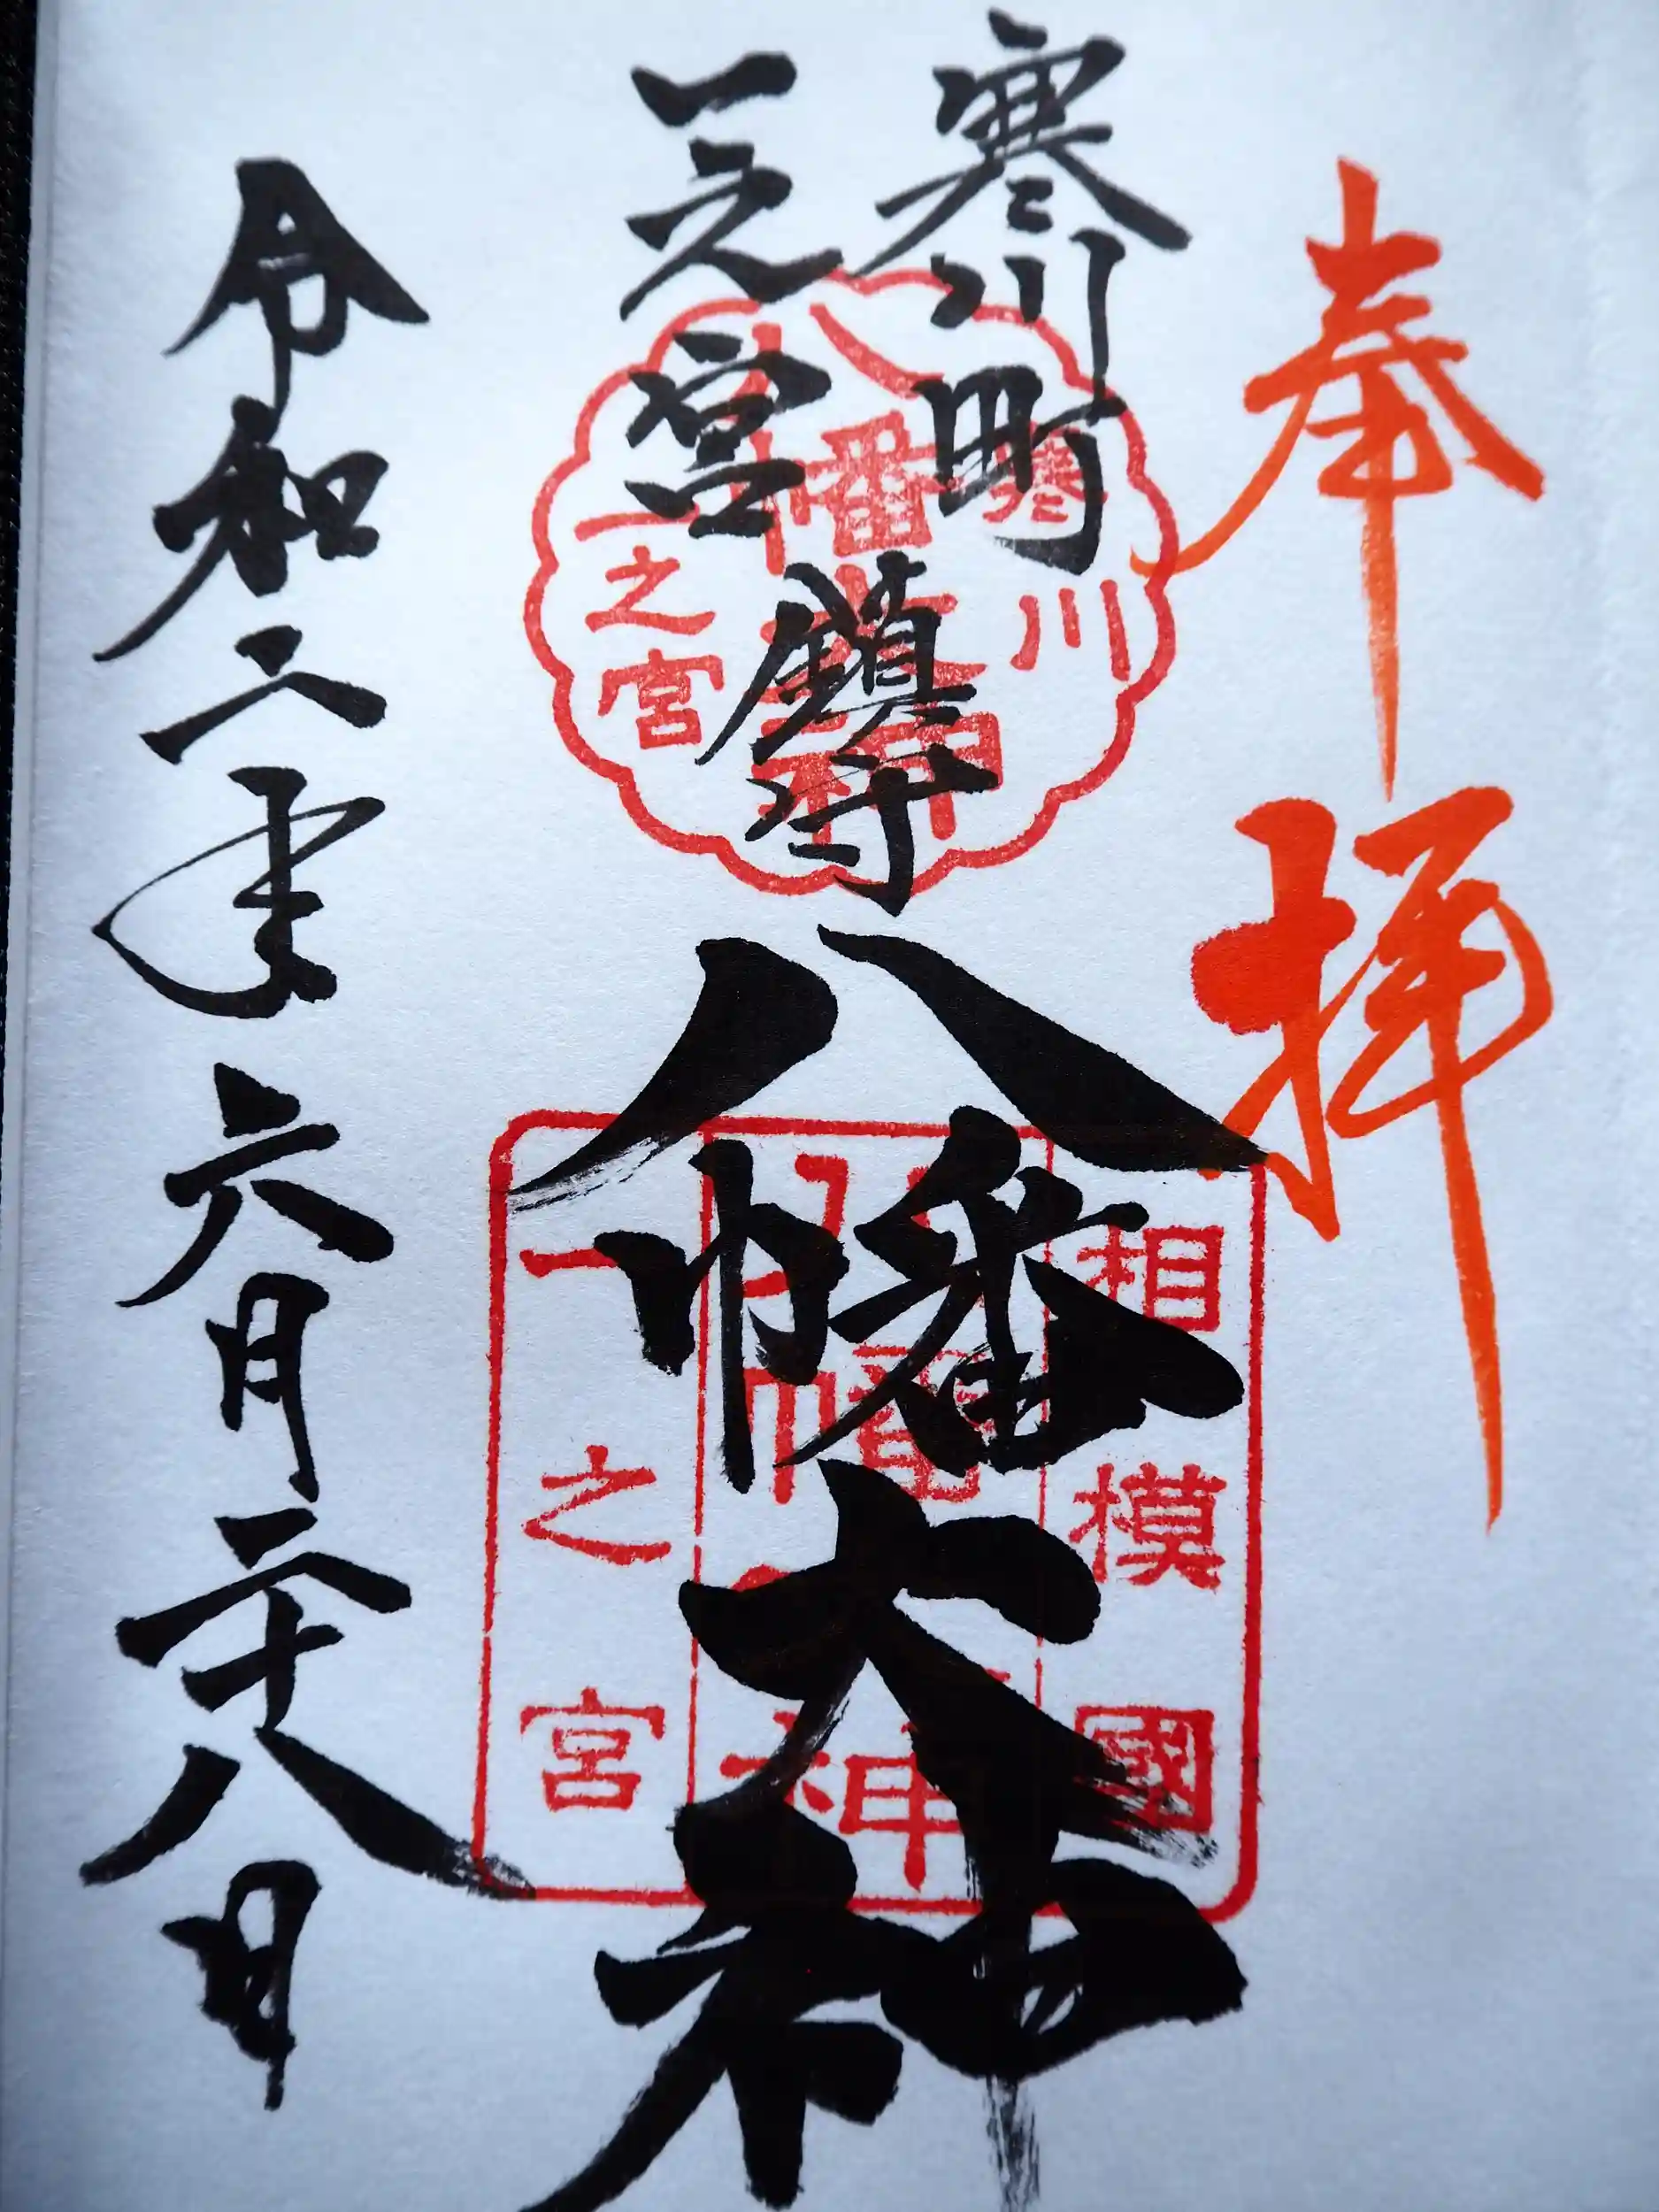 奉拝
寒川町
一之宮
鎮守
八幡大神
令和二年六月二十八日
寒川
一之宮
相模國
一之宮